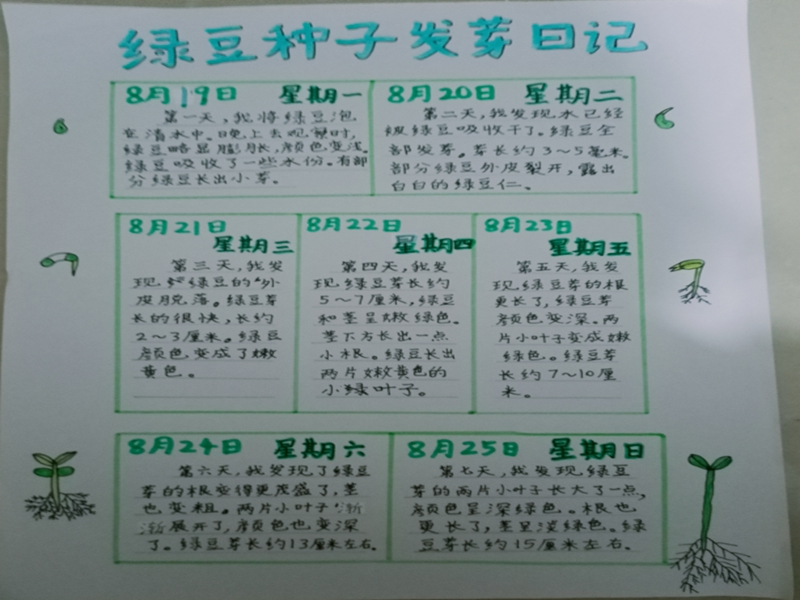 绿豆种子发芽日记
8月19日 星期一
第一天,我将绿豆泡
在清水中。晚上去观察时,
绿豆略显膨胀,颜色变浅。
绿豆吸收了一些水份。有部
分绿豆长出小芽。
8月20日 星期二
第二天,我发现水已经
被绿豆吸收干了。绿豆全
部发芽。芽长约3~5毫米。
部分绿豆外皮裂开,露出
白白的绿豆仁。
8月21日
星期三
第三天,我发
现绿豆的外
皮脱落。绿豆芽
长的很快,长约
2~3厘米。绿豆
颜色变成了嫩
黄色。
8月22日
星期四
第四天,我发
现绿豆芽长约
5~7厘米,绿豆
和茎呈嫩绿色。
茎下方长出一点
小根。绿豆长出
两片嫩黄色的
小绿叶子。
8月23日
星期五
第五天,我发
现绿豆芽的根
更长了,绿豆芽
颜色变深。两
片小叶子变成嫩
绿色。绿豆芽
长约7~10厘
米。
8月24日 星期六
第六天,我发现了绿豆
芽的根变得更茂盛了,茎
也变粗。两片小叶子渐
渐展开了,颜色也变深
了。绿豆芽长约13厘米左右。
8月25日 星期日
第七天,我发现绿豆
芽的两片小叶子长大了一点,
颜色呈深绿色。根也
更长了,茎呈淡绿色。绿
豆芽长约15厘米左右。